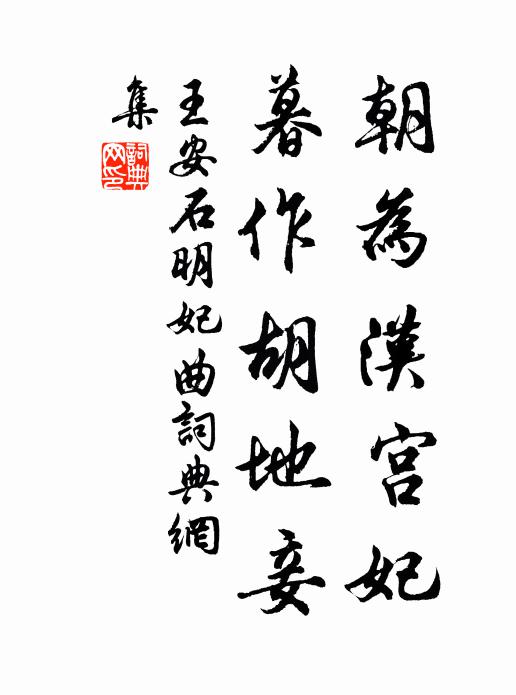 朝為漢宮妃
暮作胡地妾
王安石明妃曲詞典網
集
詞典
网印